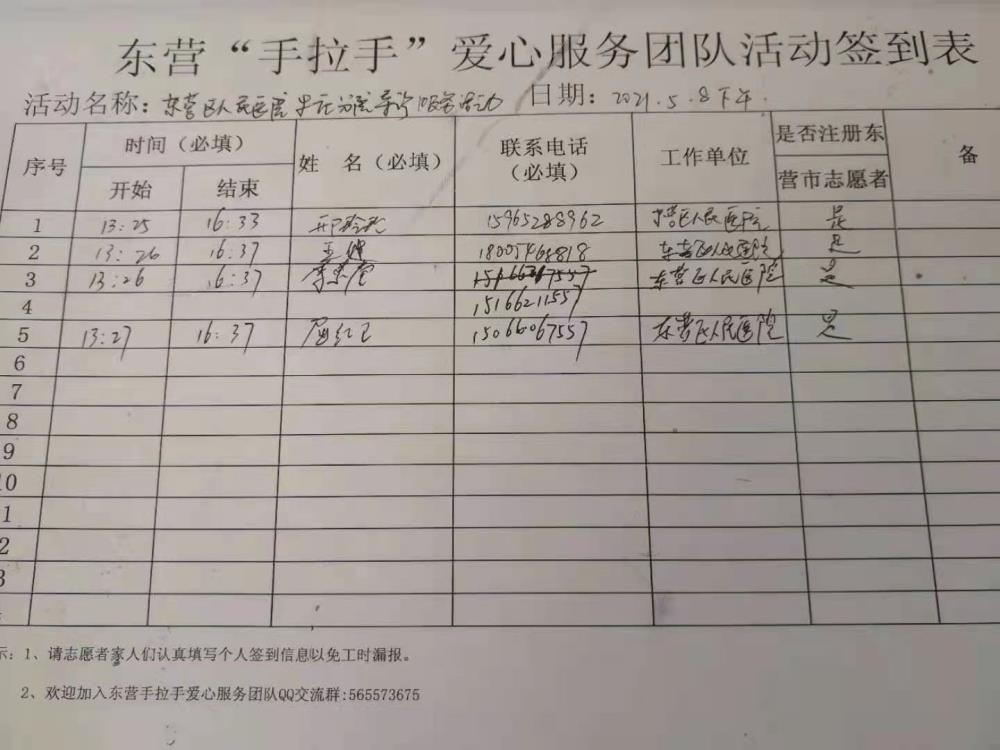 东营“手拉手”爱心服务团队活动签到表
活动名称：东营区人民医院 导诊服务活动 日期：2021.5.8下午.
序号 时间（必填） 姓 名（必填） 联系电话（必填） 工作单位 是否注册东营市志愿者 备
开始 结束
1 13:25 16:33 15965288962 东营区人民医院 是
2 13:26 16:37 王 18005468818 东营区人民医院 是
3 13:26 16:37 李 东营区人民医院 是
4 15166211557
5 13:27 16:37 15066067557 东营区人民医院 是
6
7
8
9
10
1
2
3
示：1、请志愿者家人们认真填写个人签到信息以免工时漏报。
2、欢迎加入东营手拉手爱心服务团队QQ交流群:565573675